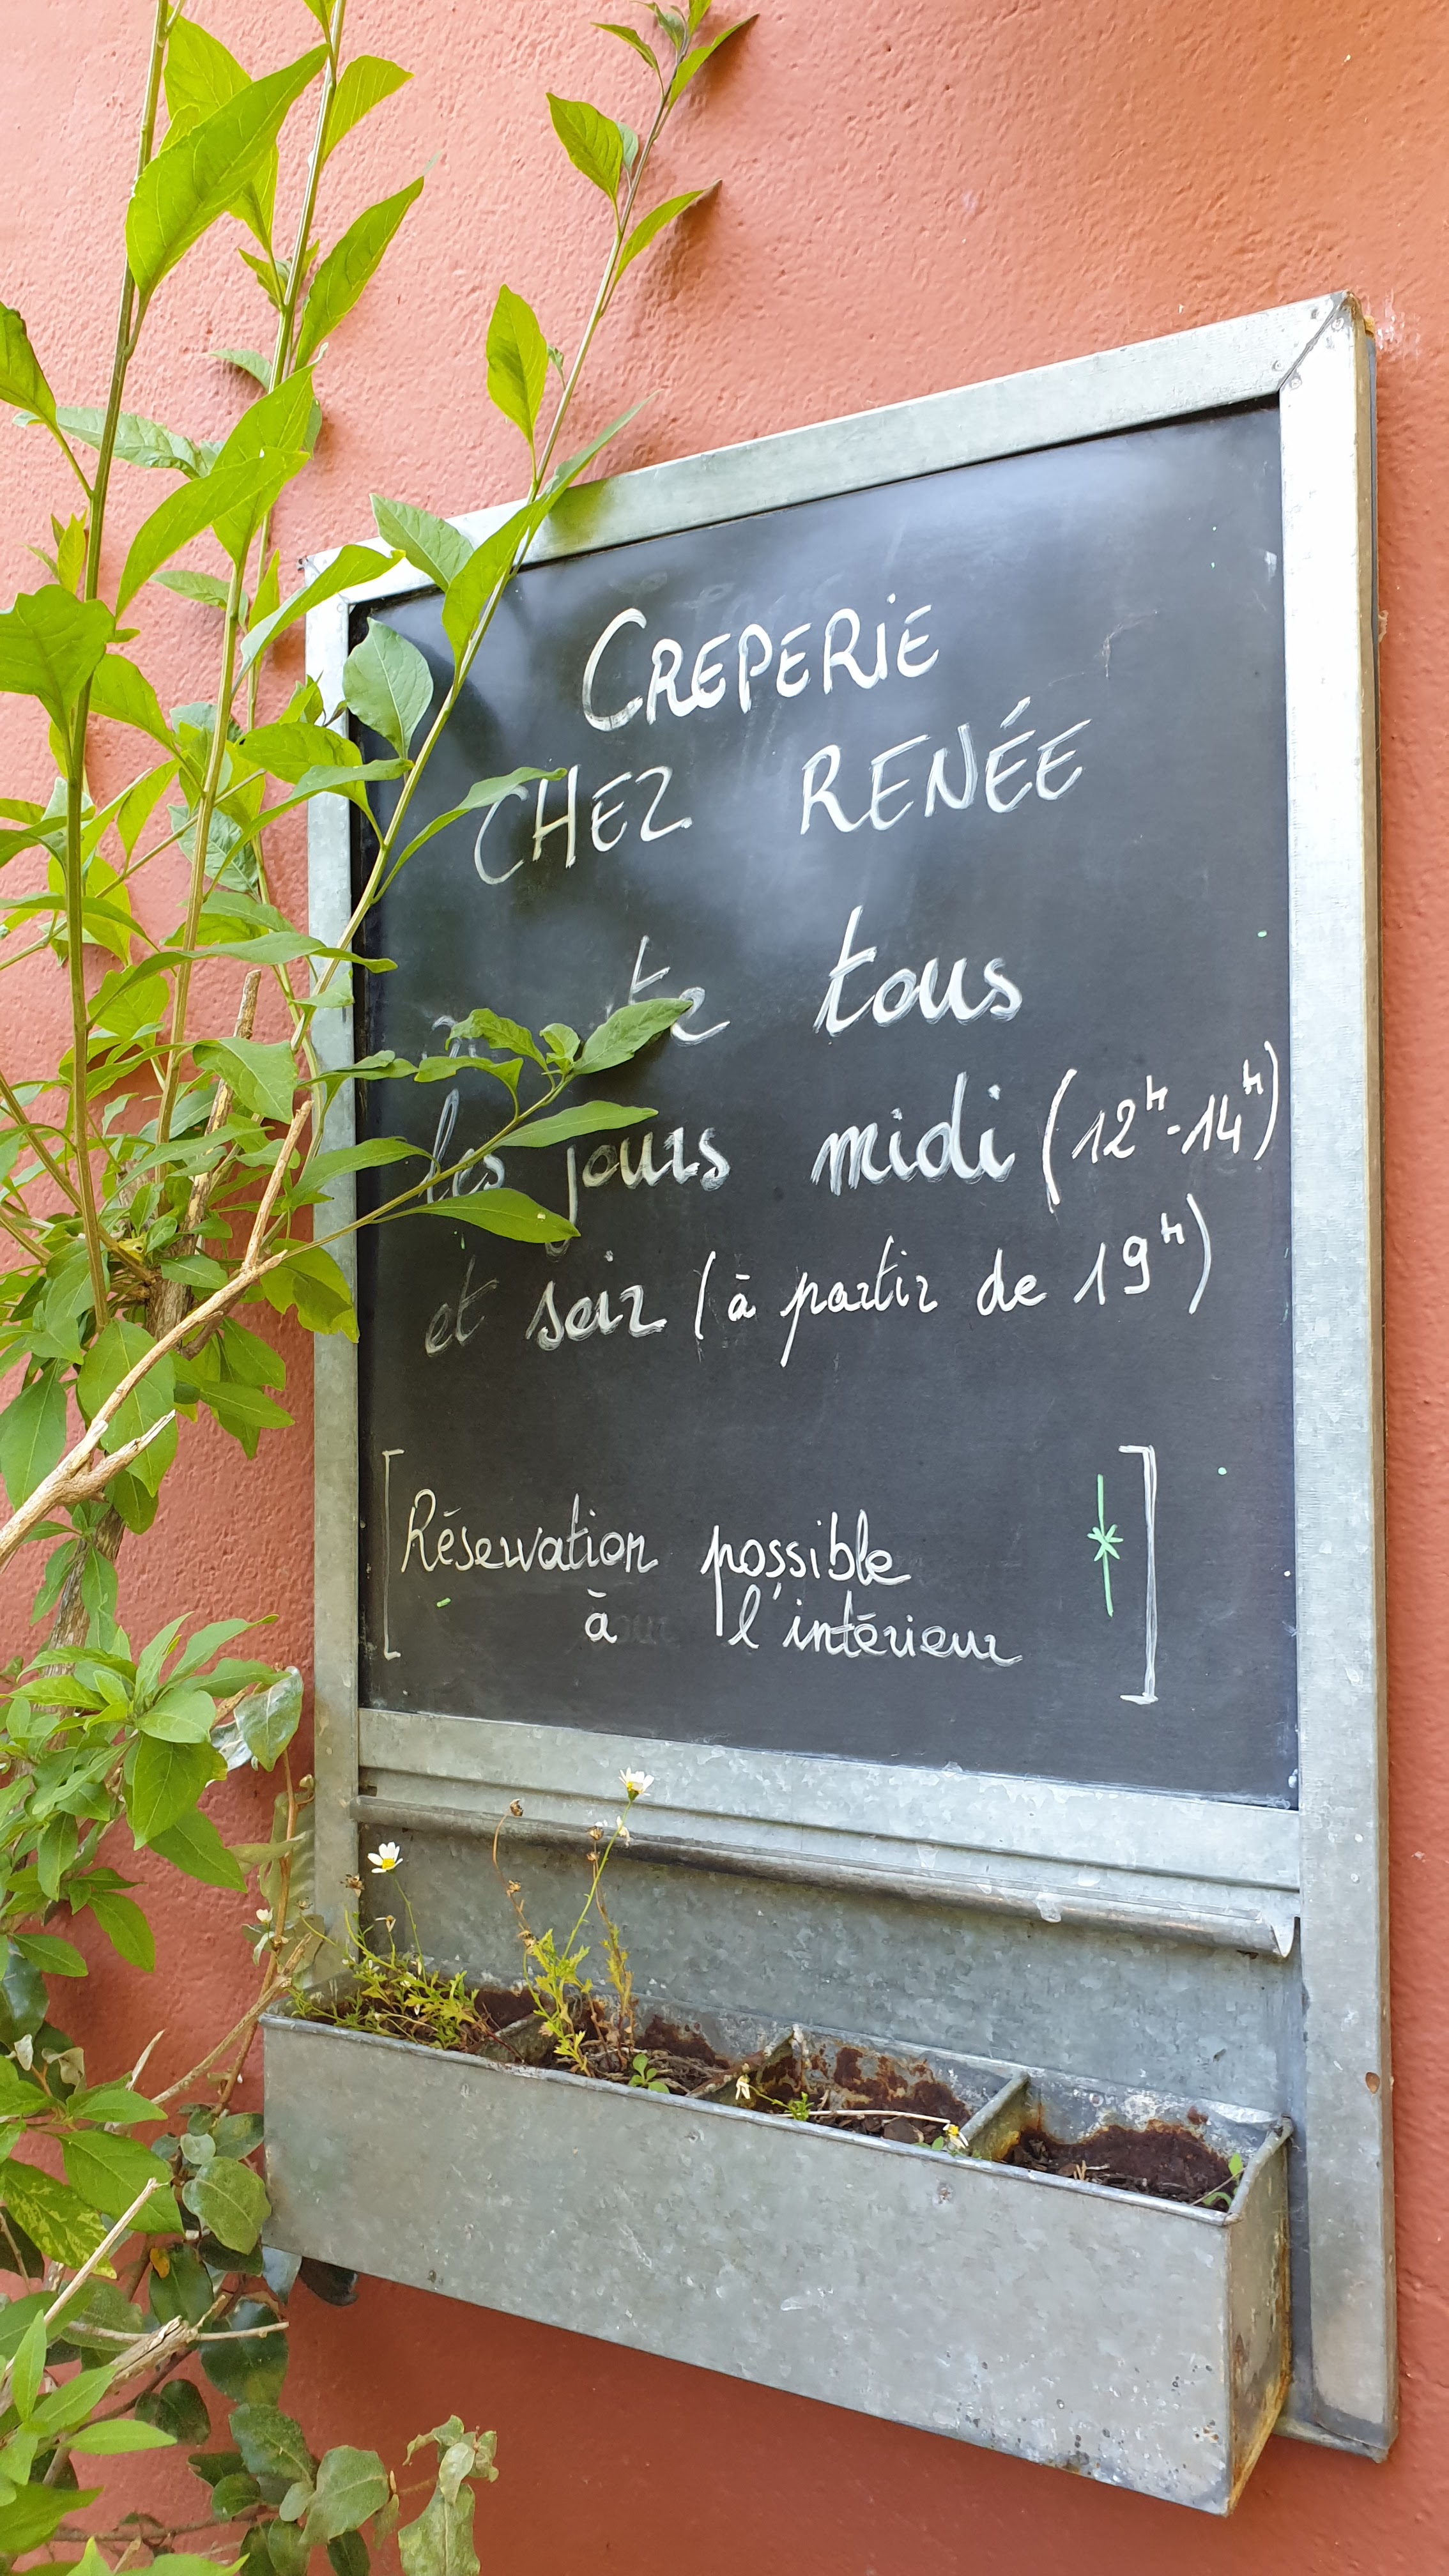 CREPERIE
CHEZ RENÉE
tous
les jours midi (12H-14H)
et soir (à partir de 19H)
[Réservation possible
à l'intérieur]